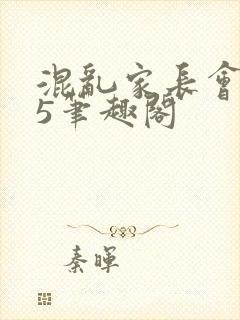 混亂家長會
5筆趣閣
秦暉